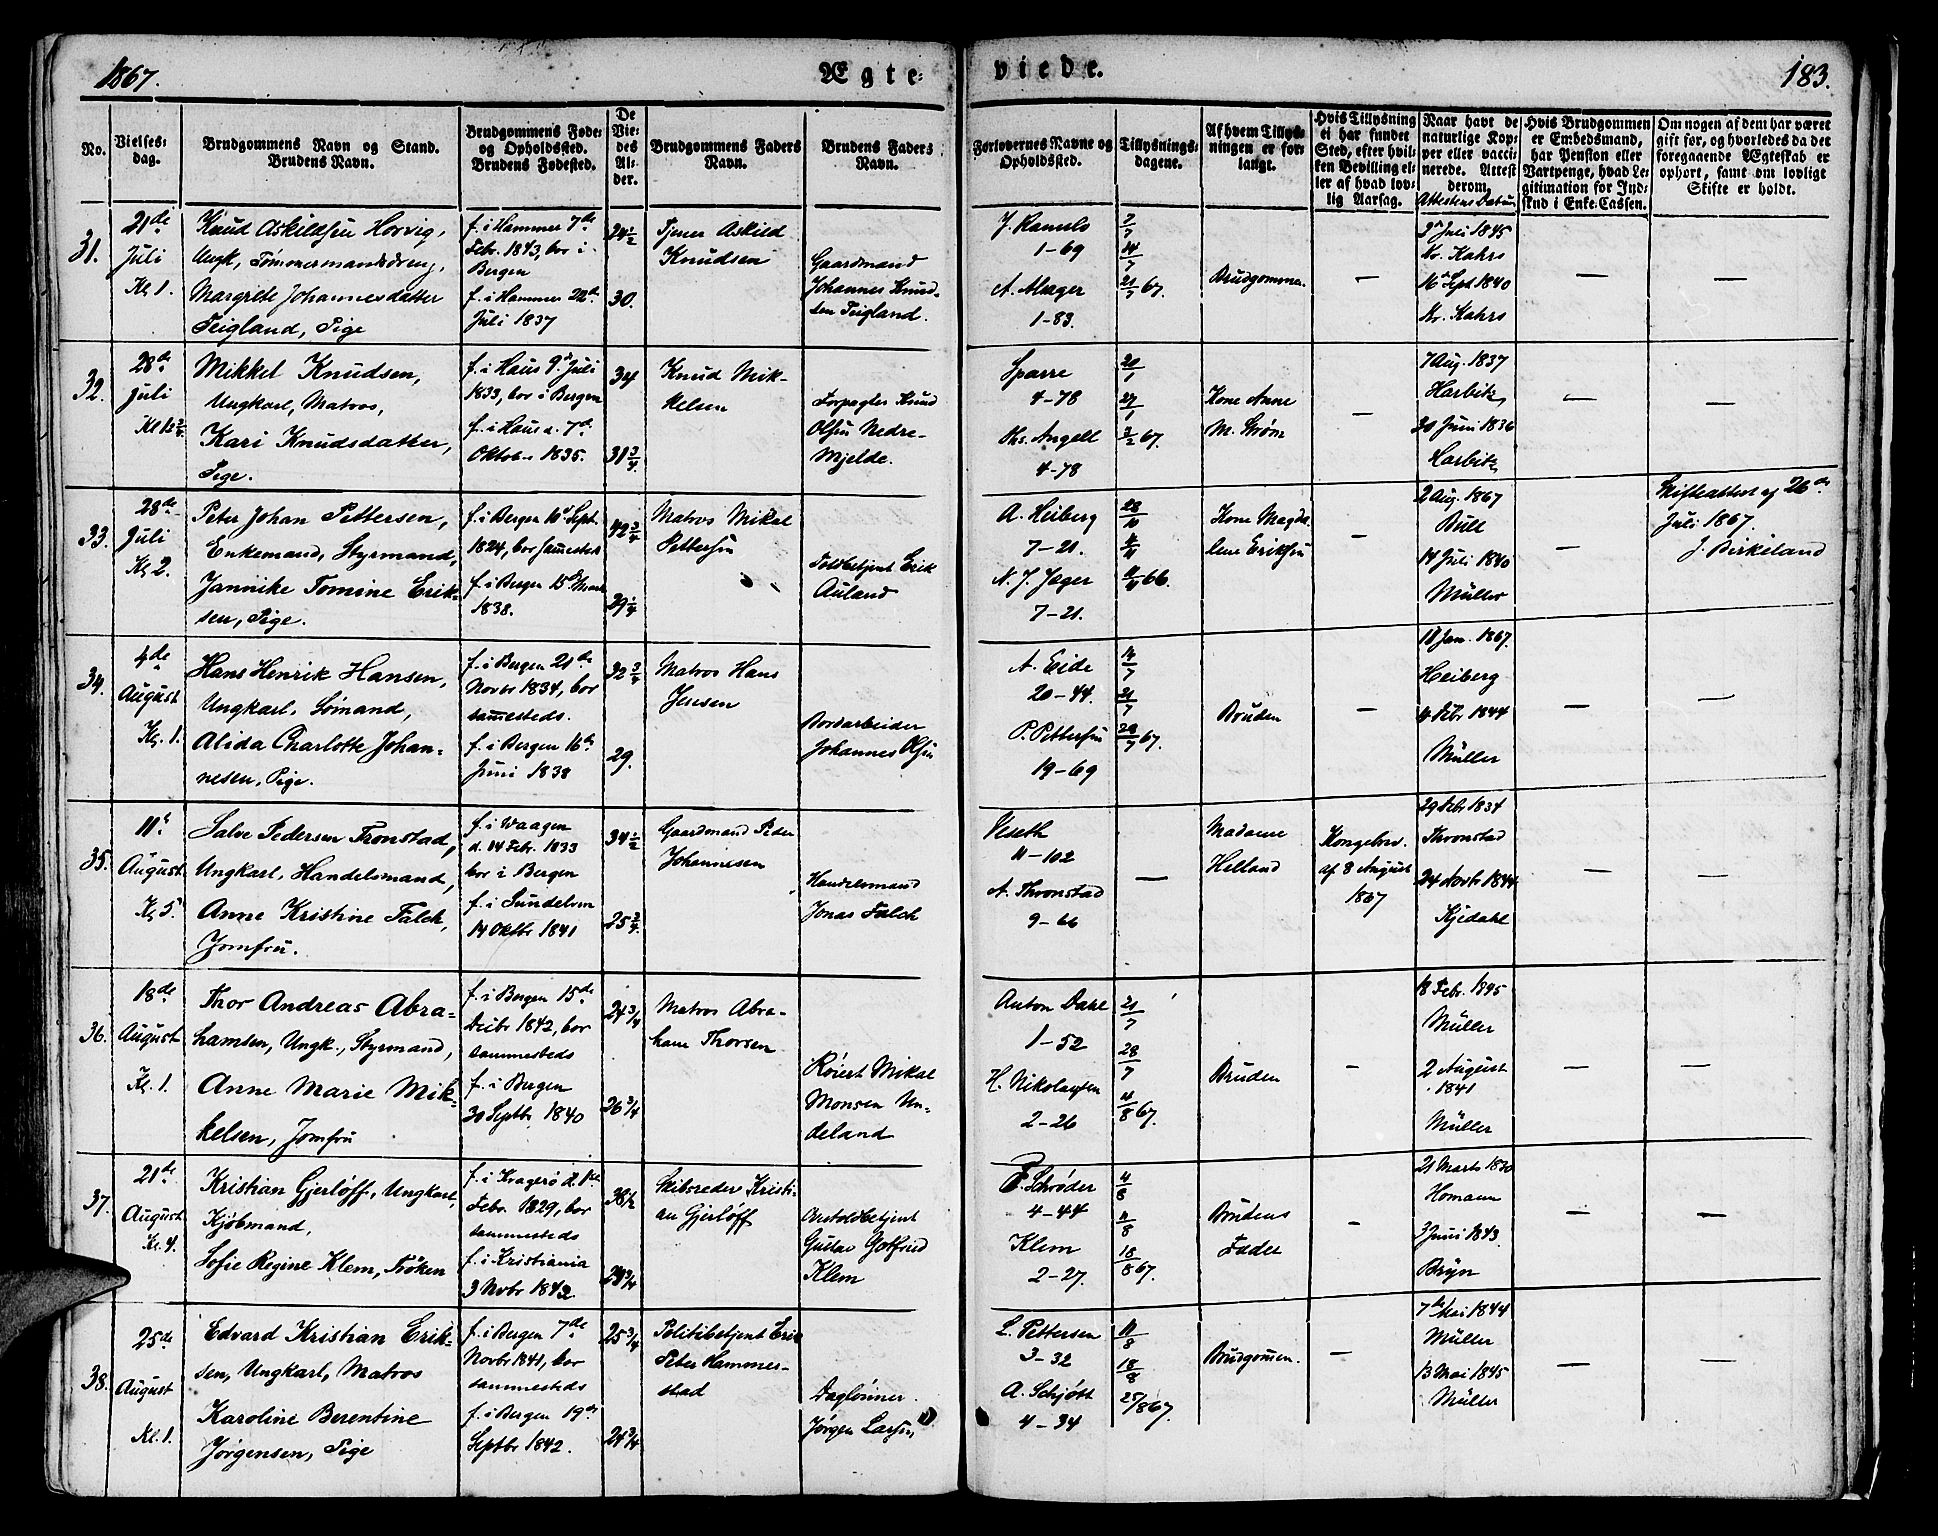 1867.
Ægte-
viede.
183.
No.
Vielses-
dag.
Brudgommens Navn og Stand.
Brudens Navn.
Brudgommens Føde-
og Opholdssted.
Brudens Fødested.
De
Vie-
des
Al-
der.
Brudgommens Faders
Navn.
Brudens Faders
Navn.
Forlovernes Navne og
Opholdssted.
Tillysnings-
dagene.
Af hvem Tillys-
ningen er for-
langt.
Hvis Tillysning
ei har fundet
Sted, efter hvil-
ken Bevilling el-
ler af hvad lov-
lig Aarsag.
Naar havt de
naturlige Kop-
per eller vacci-
nerede. Attest
derom.
Attestens Datum
Hvis Brudgommen
er Embedsmand,
har Pension eller
Vartpenge, hvad Le-
gitimation for Ind-
skud i Enke-Cassen.
Om nogen af dem har været
gift før, og hvorledes da det
foregaaende Ægteskab er
ophørt, samt om lovligt
Skifte er holdt.
31.
21de
Juli
Kl 1.
Knud Askildsen Horvig,
Ungk, Tømmermandsdreng,
Margrete Johannesdatter
Teigland, Pige
f. i Hammer 7de
Febr. 1843, bor i
Bergen
f. i Hammer 22de
Juli 1837
24 1/2
30.
Tjener Askild
Knudsen
Gaardmand
Johannes Knud-
sen Teigland.
J. Ramslo
1-69
A. Alsager
1-83.
7/7
14/7
21/7 67.
Brudgommen.
-
3 Juli 1845
Kr. Kahrs
16 Sept 1840
Kr. Kahrs
-
-
32.
28de
Juli
Mikkel Knudsen,
Ungkarl, Matros,
Kari Knudsdatter,
Pige.
f. i Haus 9d Juli
1833, bor i Bergen
f. i Haus d. 7de
Oktober 1835.
34
31 3/4.
Knud Mik-
kelsen
Forpagter Knud
Olsen Nedre-
Mjelde.
Sparre
4-78
Chs. Angell
4-78
20/1
27/1
3/2 67.
Kone Anne
M. Strøm
-
7 Aug. 1837
Harbitz
20 Juni 1836
Harbitz
-
-
33.
28de
Juli
Kl 2.
Peter Johan Pettersen,
Enkemand, Styrmand,
Jannike Tomine Erik-
sen, Pige.
f. i Bergen 10d Sept.
1824, bor sammesteds
f. i Bergen 15d Marts
1838.
42 3/4
29 1/4
Matros Mikal
Pettersen
Toldbetjent Erik
Auland
A. Heiberg
7-21.
N. J. Jæger
7-21.
28/10
4/11
11/11 66.
Kone Magda-
lene Eriksen
-
2 Aug. 1867
Bull
14 Juli 1840
Müller
-
Skifteattest af 26de
Juli 1867.
J. Birkeland
34.
4de
August
Kl. 1.
Hans Henrik Hansen,
Ungkarl, Sømand,
Alida Charlotte Johan-
nesen, Pige.
f. i Bergen 21de
Novbr 1834, bor
sammesteds.
f. i Bergen 16de
Juni 1838
32 3/4
29.
Matros Hans
Jensen
Bordarbeider
Johannes Olsen
A. Eide
20-44.
P. Pettersen
19-69
14/7
21/7
28/7 67.
Bruden
-
18 Jan. 1867.
Heiberg
4 Febr 1844
Müller
-
-
35.
11te
August
Kl 5.
Salve Pedersen Tronstad,
Ungkarl, Handelsmand,
Anne Kristine Falck,
Jomfru.
f. i Vaagen
d. 14 Febr. 1833
bor i Bergen
f. i Sundelven
14 Oktbr 1841
34 1/2
25 3/4.
Gaardmand Peder
Johannesen
Handelsmand
Jonas Falck
Veseth
11-102
A. Thronstad
9-66
-
Madame
Helland
Kongebrev.
af 8 August
1867
29 Febr 1834
Thronstad
24 Novbr 1844
Kjedahl
-
-
36.
18de
August
Kl. 1.
Thor Andreas Abra-
hamsen, Ungk., Styrmand,
Anne Marie Mik-
kelsen, Jomfru
f. i Bergen 15de
Decbr 1842, bor
sammesteds
f. i Bergen
30 Septbr 1840
24 3/4
26 3/4
Matros Abra-
ham Thorsen
Røiert Mikal
Monsen Un-
deland
Anton Dahl
1-52
H. Nikolaysen
2-26
21/7
28/7
4/8 67.
Bruden
-
18 Febr. 1845
Müller
2 August
1841
Müller
-
-
37.
21de
August
Kl. 4.
Kristian Gjerløff, Ungkarl,
Kjøbmand,
Sofie Regine Klem, Frøken
f. i Kragerø d. 1ste
Febr. 1829, bor
sammesteds
f. i Kristiania
3 Novbr 1842
38 1/2
24 3/4
Skibsreder Kristi-
an Gjerløff
Overtoldbetjent
Gustav Gotfried
Klem
P. Schrøder
4-44
Klem
2-27.
4/8
11/8
18/8 67.
Brudens
Fader
-
21 Marts 1830
Homann
3 Juni 1843.
Bryn
-
-
38.
25de
August
Kl. 1.
Edvard Kristian Erik-
sen, Ungkarl, Matros
Karoline Berentine
Jørgensen, Pige
f. i Bergen 7de
Novbr 1841, bor
sammesteds
f. i Bergen 19de
Septbr 1842.
25 3/4
24 3/4
Politibetjent Erik
Peter Hammer-
stad
Daglønner
Jørgen Larsen
L. Pettersen
3-32
A. Schjøtt
4-34
11/8
18/8
25/8 67.
Brudgommen.
-
7de Mai 1844
Müller
13 Mai 1845
Müller
-
-